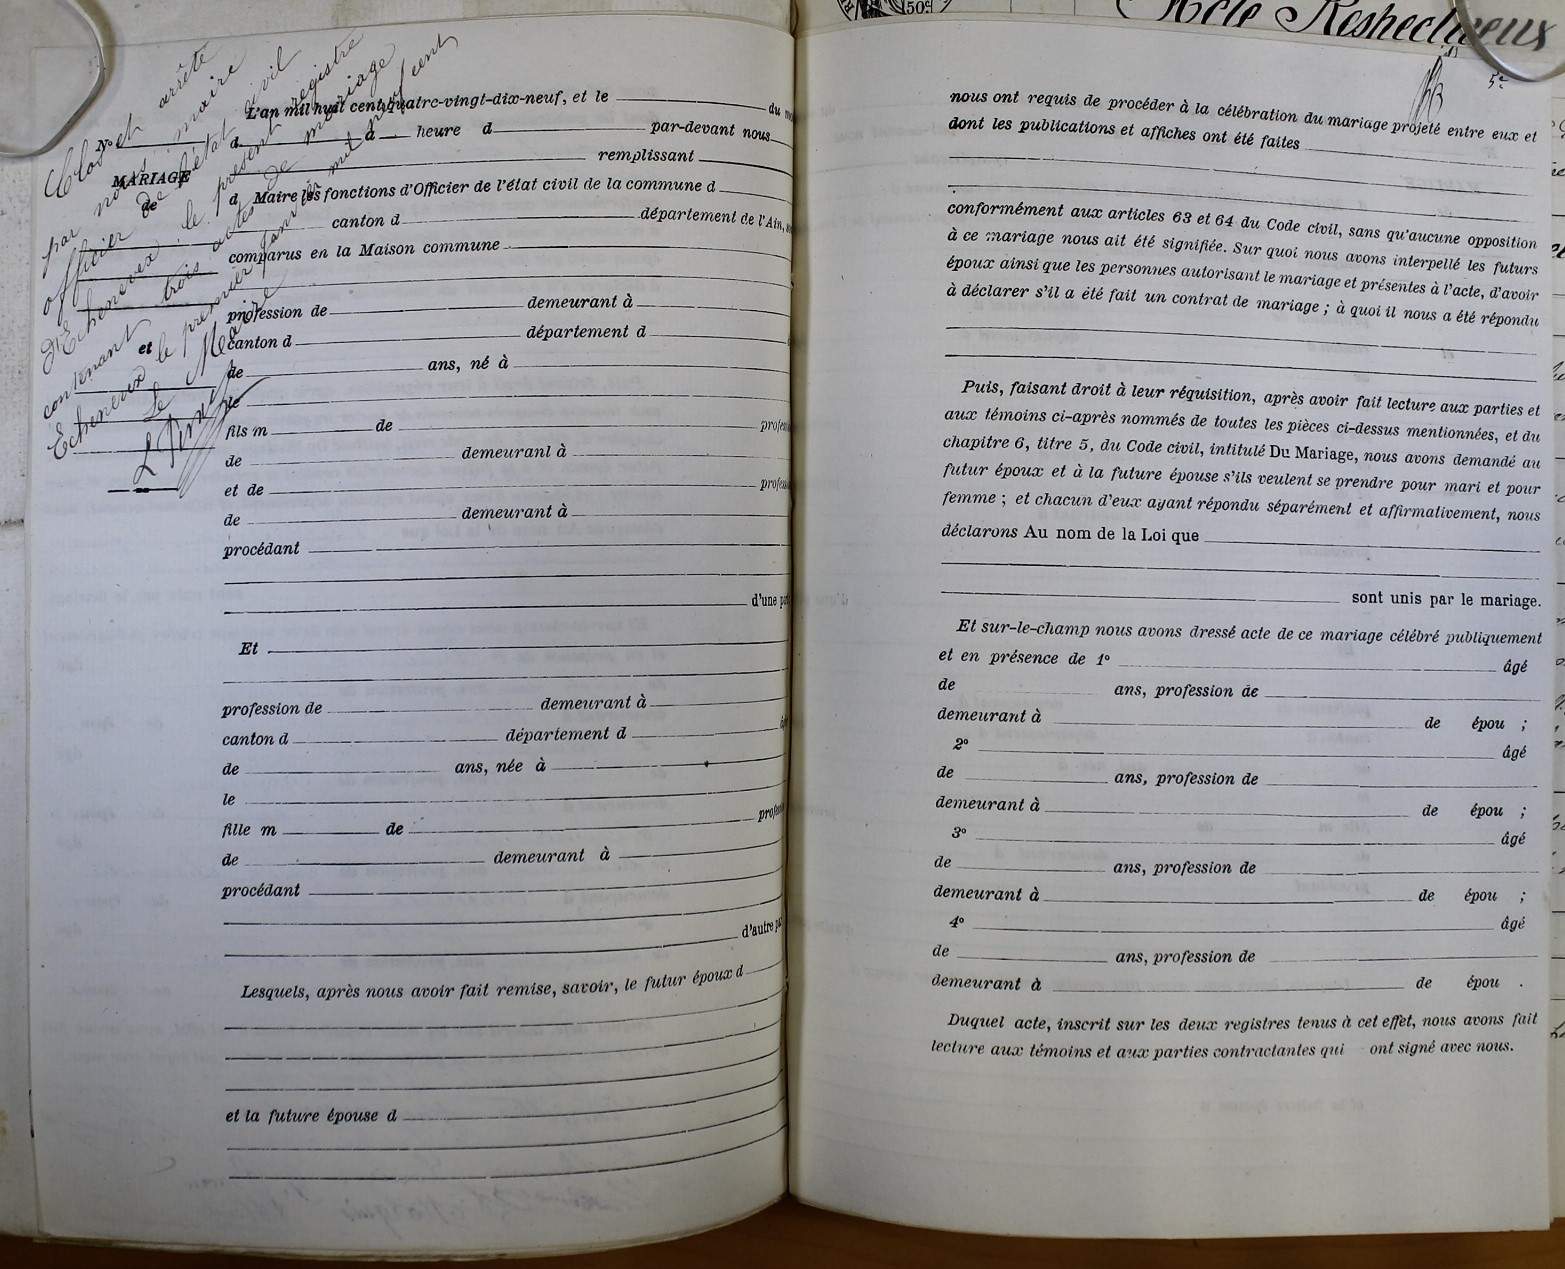 Clos et arrêté
par nous maire
officier de l'état civil
d'Echenevex le présent registre
contenant trois actes de mariage
Echenevex le premier janvier mil neuf cent
Le Maire
N°
MARIAGE
de
et
L'an mil huit cent quatre-vingt-dix-neuf, et le du
d à heure d par-devant nous
remplissant
d Maire les fonctions d'Officier de l'état civil de la commune d
canton d département de l'Ain,
comparus en la Maison commune
profession de demeurant à
canton d département d
de ans, né à
le
fils m de
de demeurant à
et de
de demeurant à
procédant
d'une
Et
profession de demeurant à
canton d département d
de ans, née à
le
fille m de
de demeurant à
procédant
d'autre
Lesquels, après nous avoir fait remise, savoir, le futur époux d
et la future épouse d
50c
Acte Respectueux
5e
nous ont requis de procéder à la célébration du mariage projeté entre eux et
dont les publications et affiches ont été faites
conformément aux articles 63 et 64 du Code civil, sans qu'aucune opposition
à ce mariage nous ait été signifiée. Sur quoi nous avons interpellé les futurs
époux ainsi que les personnes autorisant le mariage et présentes à l'acte, d'avoir
à déclarer s'il a été fait un contrat de mariage ; à quoi il nous a été répondu
Puis, faisant droit à leur réquisition, après avoir fait lecture aux parties et
aux témoins ci-après nommés de toutes les pièces ci-dessus mentionnées, et du
chapitre 6, titre 5, du Code civil, intitulé Du Mariage, nous avons demandé au
futur époux et à la future épouse s'ils veulent se prendre pour mari et pour
femme ; et chacun d'eux ayant répondu séparément et affirmativement, nous
déclarons Au nom de la Loi que
sont unis par le mariage.
Et sur-le-champ nous avons dressé acte de ce mariage célébré publiquement
et en présence de 1° âgé
de ans, profession de
demeurant à de épou ;
2° âgé
de ans, profession de
demeurant à de épou ;
3° âgé
de ans, profession de
demeurant à de épou ;
4° âgé
de ans, profession de
demeurant à de épou .
Duquel acte, inscrit sur les deux registres tenus à cet effet, nous avons fait
lecture aux témoins et aux parties contractantes qui ont signé avec nous.